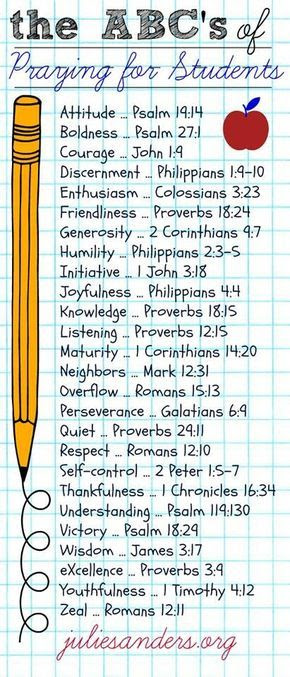 the ABC's of
Praying for Students
Attitude ... Psalm 19:14
Boldness ... Psalm 27:1
Courage ... John 1:9
Discernment ... Philippians 1:9-10
Enthusiasm ... Colossians 3:23
Friendliness ... Proverbs 18:24
Generosity ... 2 Corinthians 9:7
Humility ... Philippians 2:3-5
Initiative ... 1 John 3:18
Joyfulness ... Philippians 4:4
Knowledge ... Proverbs 18:15
Listening ... Proverbs 12:15
Maturity ... 1 Corinthians 14:20
Neighbors ... Mark 12:31
Overflow ... Romans 15:13
Perseverance ... Galatians 6:9
Quiet ... Proverbs 29:11
Respect ... Romans 12:10
Self-control ... 2 Peter 1:5-7
Thankfulness ... 1 Chronicles 16:34
Understanding ... Psalm 119:130
Victory ... Psalm 18:29
Wisdom ... James 3:17
eXcellence ... Proverbs 3:9
Youthfulness ... 1 Timothy 4:12
Zeal ... Romans 12:11
juliesanders.org